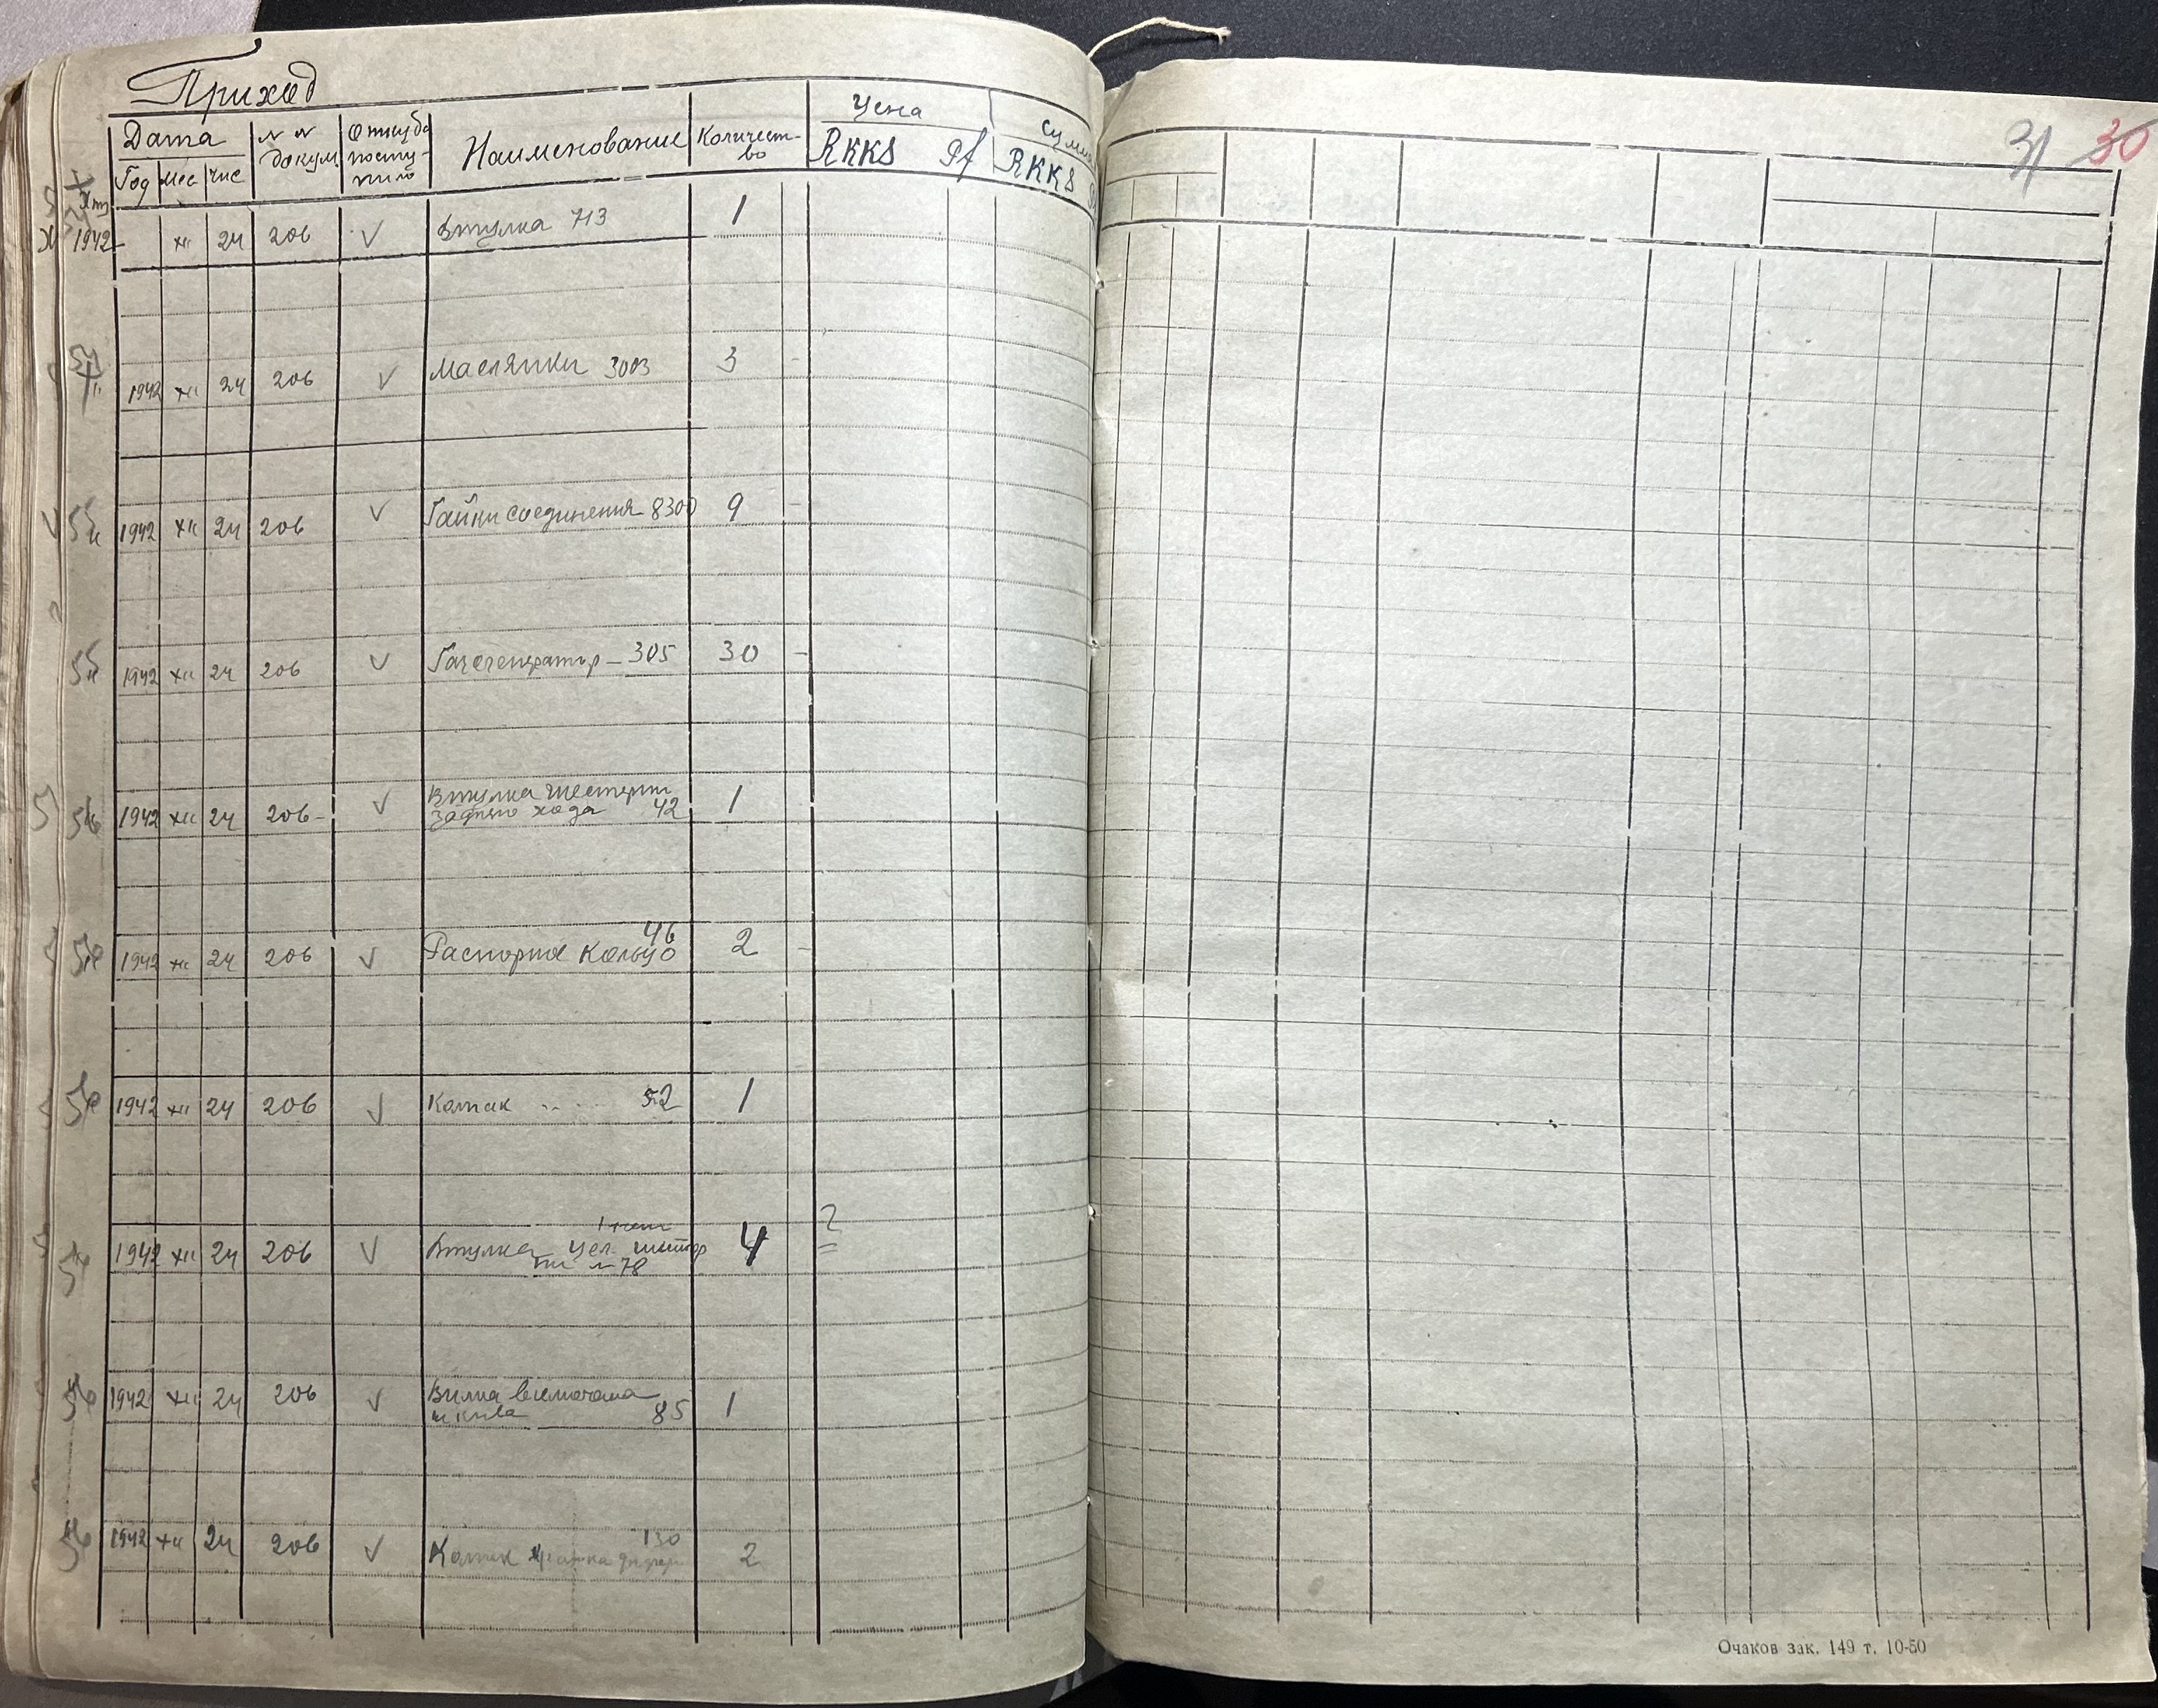 Приход
Дата
Год Мес Чис
№ № докум
Откуда
посту-
пило
Наименование
Количест-
во
Цена
RKKS Pf
Сумма
RKKS
31 30
1942 XII 24 206 V Втулка 713 1
1942 XII 24 206 V Маслянки 3003 3
1942 XII 24 206 V Гайки соединения 8300 9
55 1942 XII 24 206 V Газогенератор - 305 30
56 1942 XII 24 206 V Втулка шестерни
заднего хода 42 1
46
1942 XII 24 206 V Распорное кольцо 2
1942 XII 24 206 V Колпак 52 1
1942 XII 24 206 V Втулка 4 ?
№ 78
56 1942 XII 24 206 V Вилка
шкива 85 1
130
56 1942 XII 24 206 V Колпак 2
Очаков зак. 149 т. 10-50